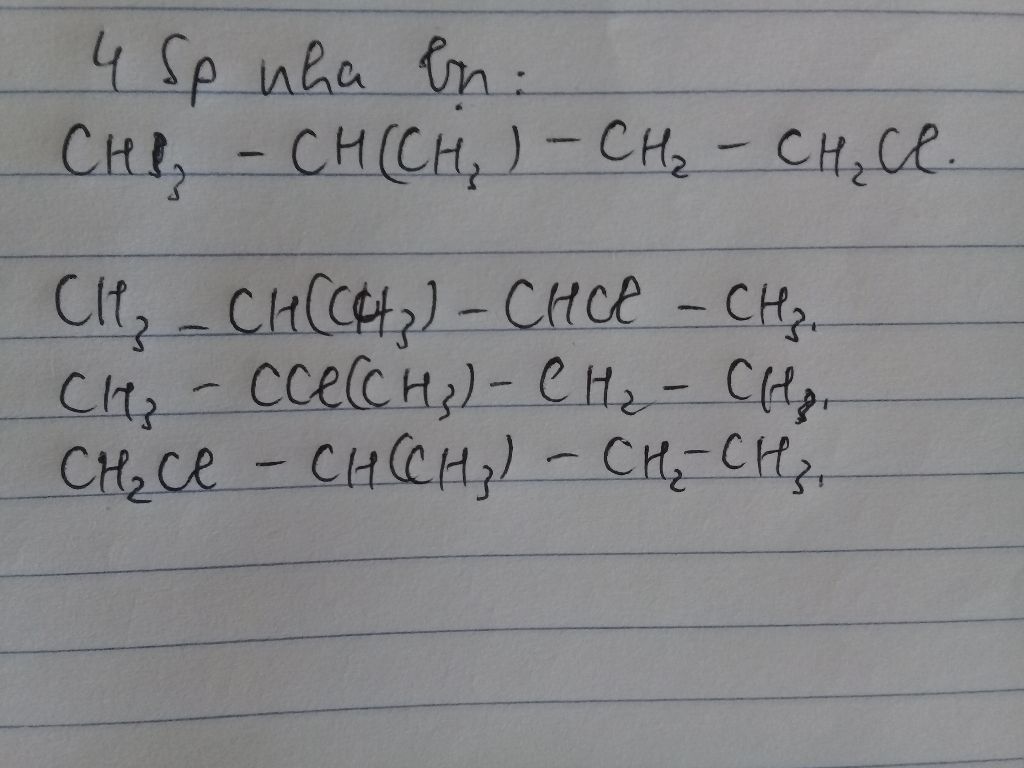 4 Sp nha bn:
CH₃ - CH(CH₃) - CH₂ - CH₂Cl.
CH₃ - CH(CH₃) - CHCl - CH₃.
CH₃ - CCl(CH₃) - CH₂ - CH₃.
CH₂Cl - CH(CH₃) - CH₂-CH₃.